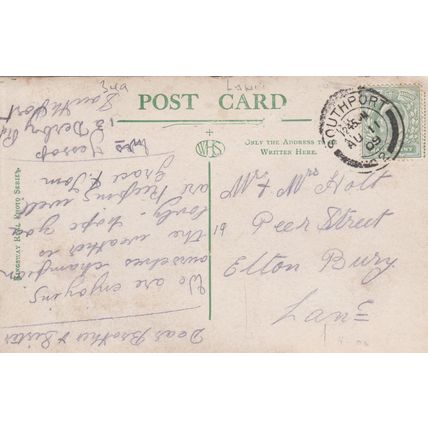 3rd
POST CARD
WHS
ONLY THE ADDRESS TO BE
WRITTEN HERE.
KINGSWAY REAL PHOTO SERIES
SOUTHPORT
12 45
AU 1
09
Mr & Mrs Holt
19 Peer Street
Elton Bury
Lanc
Dear Brother & Sister
We are enjoying
ourselves champion
the weather is
lovely. hope you
are keeping well
Grace & Tom
Mrs Jessop
13 Derby Rd
Southport